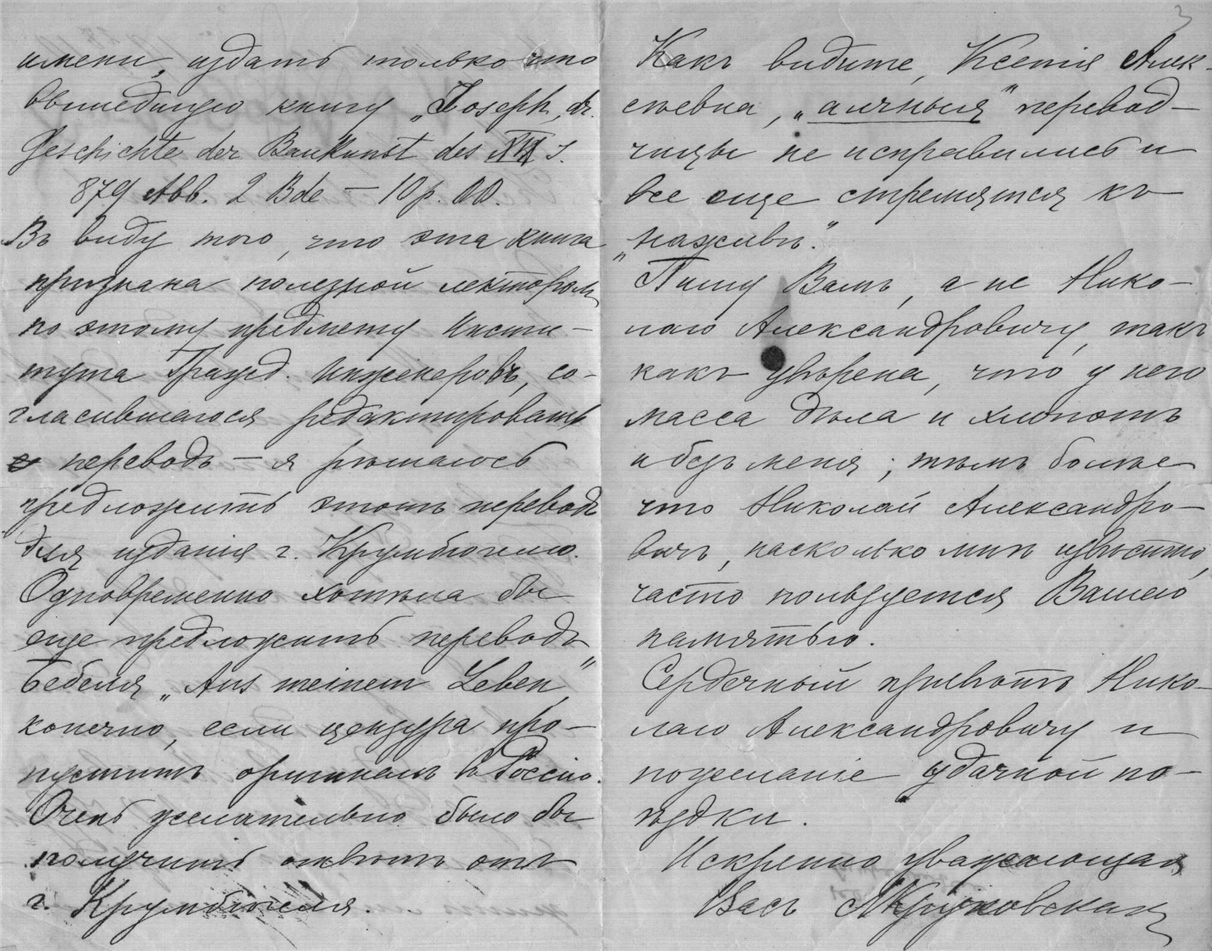 имени, издать только что
вышедшую книгу „Joseph, dr.
Geschichte der Baukunst des XIX J.
879 Abb. 2 Bde — 10 р. 00.
Въ виду того, что эта книга
признана полезной лекторомъ
по этому предмету Инсти-
тута Гражд. Инженеровъ, со-
гласившагося редактировать
переводъ — я рѣшаюсь
предложить этотъ переводъ
для изданія г. Крумбюгелю.
Одновременно хотѣла бы
еще предложить переводъ
Бебеля „Aus meinem Leben“,
конечно, если цензура про-
пуститъ оригиналъ въ Россію.
Очень желательно было бы
получить отвѣтъ отъ
г. Крумбюгеля.
3
Какъ видите, Ксенія Алек-
сѣевна, „алчныя“ перевод-
чицы не исправились и
все еще стремятся къ
„наживѣ“.
Пишу Вамъ, а не Нико-
лаю Александровичу, такъ
какъ увѣрена, что у него
масса дѣла и хлопотъ
и безъ меня; тѣмъ болѣе
что Николай Александро-
вичъ, насколько мнѣ извѣстно,
часто пользуется Вашею
памятью.
Сердечный привѣтъ Нико-
лаю Александровичу и
пожеланіе удачной по-
ѣздки.
Искренно уважающая
Васъ